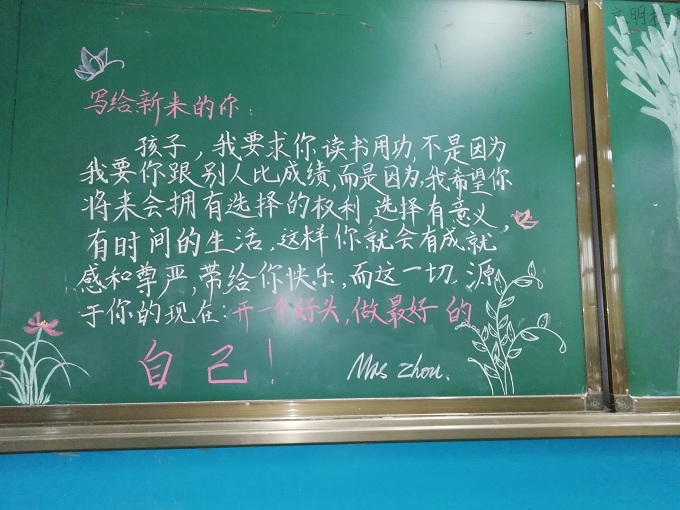 写给新来的你：
孩子，我要求你读书用功，不是因为
我要你跟别人比成绩，而是因为，我希望你
将来会拥有选择的权利，选择有意义，
有时间的生活，这样你就会有成就
感和尊严，带给你快乐，而这一切，源
于你的现在：开一个好头，做最好的
自己！
Mrs Zhou.
文明